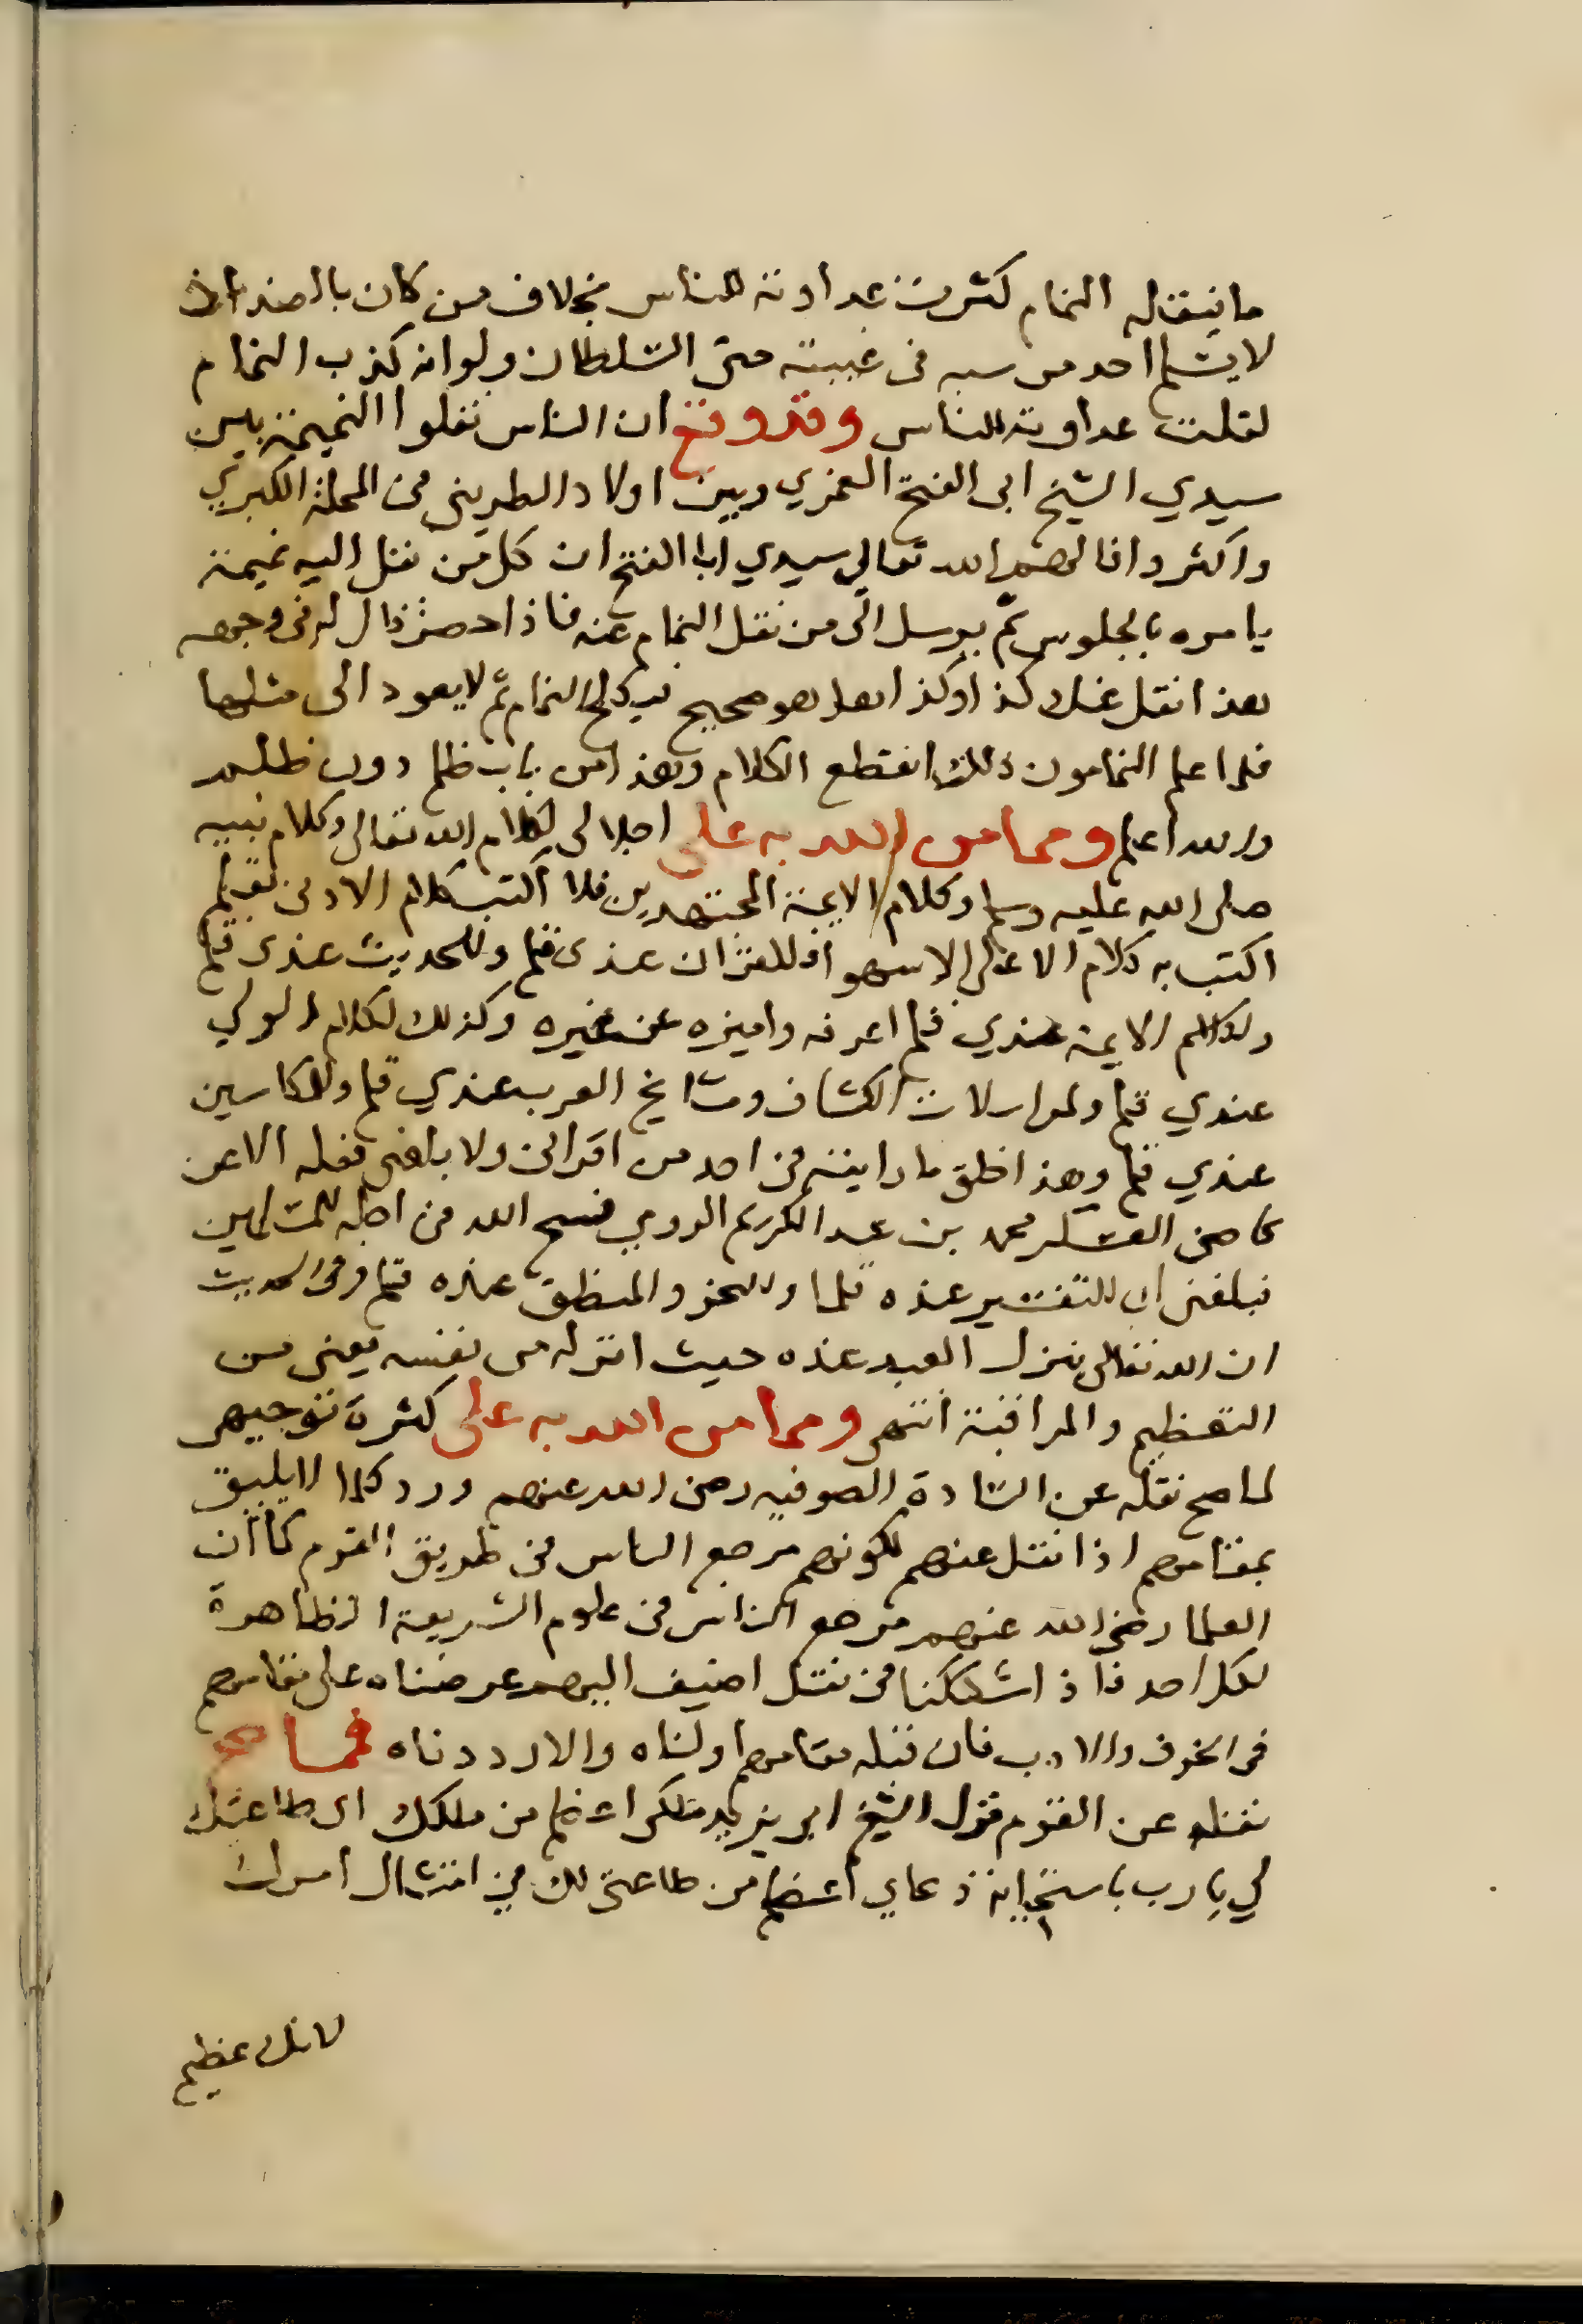 ما ينقله النمام كثرت عداوته للناس بخلاف من كان بالضد اذ
لا يسلم احد من سبه في غيبته حتى السلطان ولو انه كذب النمام
لقلت عداوته للناس وقد وقع ان الناس نقلوا النميمة بين
سيدي الشيخ ابى الفتح الغمري وبين اولاد الطريني في المحلة الكبري
واكثروا فالهم الله تعالى سيدي ابا الفتح ان كل من نقل اليه نميمة
يامره بالجلوس ثم يرسل الى من نقل النمام عنه فاذا حضر قال له في وجهه
هذا نقل عنك كذا وكذا هل هو صحيح فيكلح النمام ثم لا يعود الى مثلها
فلما علم النمامون ذلك انقطع الكلام وهذا من باب ظلم دون ظلم
والله اعلم ومما من الله به على اجلالى لكلام الله تعالى وكلام نبيه
صلى الله عليه وسلم وكلام الايمة المجتهدين فلا اكتب كلام الادنى بقلم
اكتب به كلام الاعلى الا سهوا فللقران عندى قلم وللحديث عندى قلم
ولكلام الايمة عندي قلم اعرفه واميزه عن غيره وكذلك لكلام الولي
عندي قلم ولمراسلات الكشاف ومشايخ العرب عندي قلم وللمكاسين
عندي قلم وهذا خلق ما رايته في احد من اقراني ولا بلغني فعله الا عن
قاضى العسكر محمد بن عبد الكريم الرومي فسح الله في اجله للمسلمين
فبلغني ان للتفسير عنده قلما وللنحو والمنطق عنده قلم وفى الحديث
ان الله تعالى ينزل العبد عنده حيث انزله من نفسه يعني من
التعظيم والمراقبة انتهى ومما من الله به على كثرة توجيهى
لما صح نقله عن السادة الصوفيه رضى الله عنهم ورد كلما لا يليق
بمقامهم اذا نقل عنهم لكونهم مرجع الناس في طريق القوم كما ان
العلما رضى الله عنهم مرجع الناس في علوم الشريعة الظاهرة
لكل احد فاذا شككنا في نقل اضيف اليهم عرضناه على مقامهم
في الخوف والادب فان قبله مقامهم اولناه والا رددناه فمما صح
نقله عن القوم قول الشيخ ابي يزيد ملكي اعظم من ملكك اى طاعتك
لي يا رب باستجابة دعاي اعظم من طاعتى لك في امتثال امرك
لانك عظيم